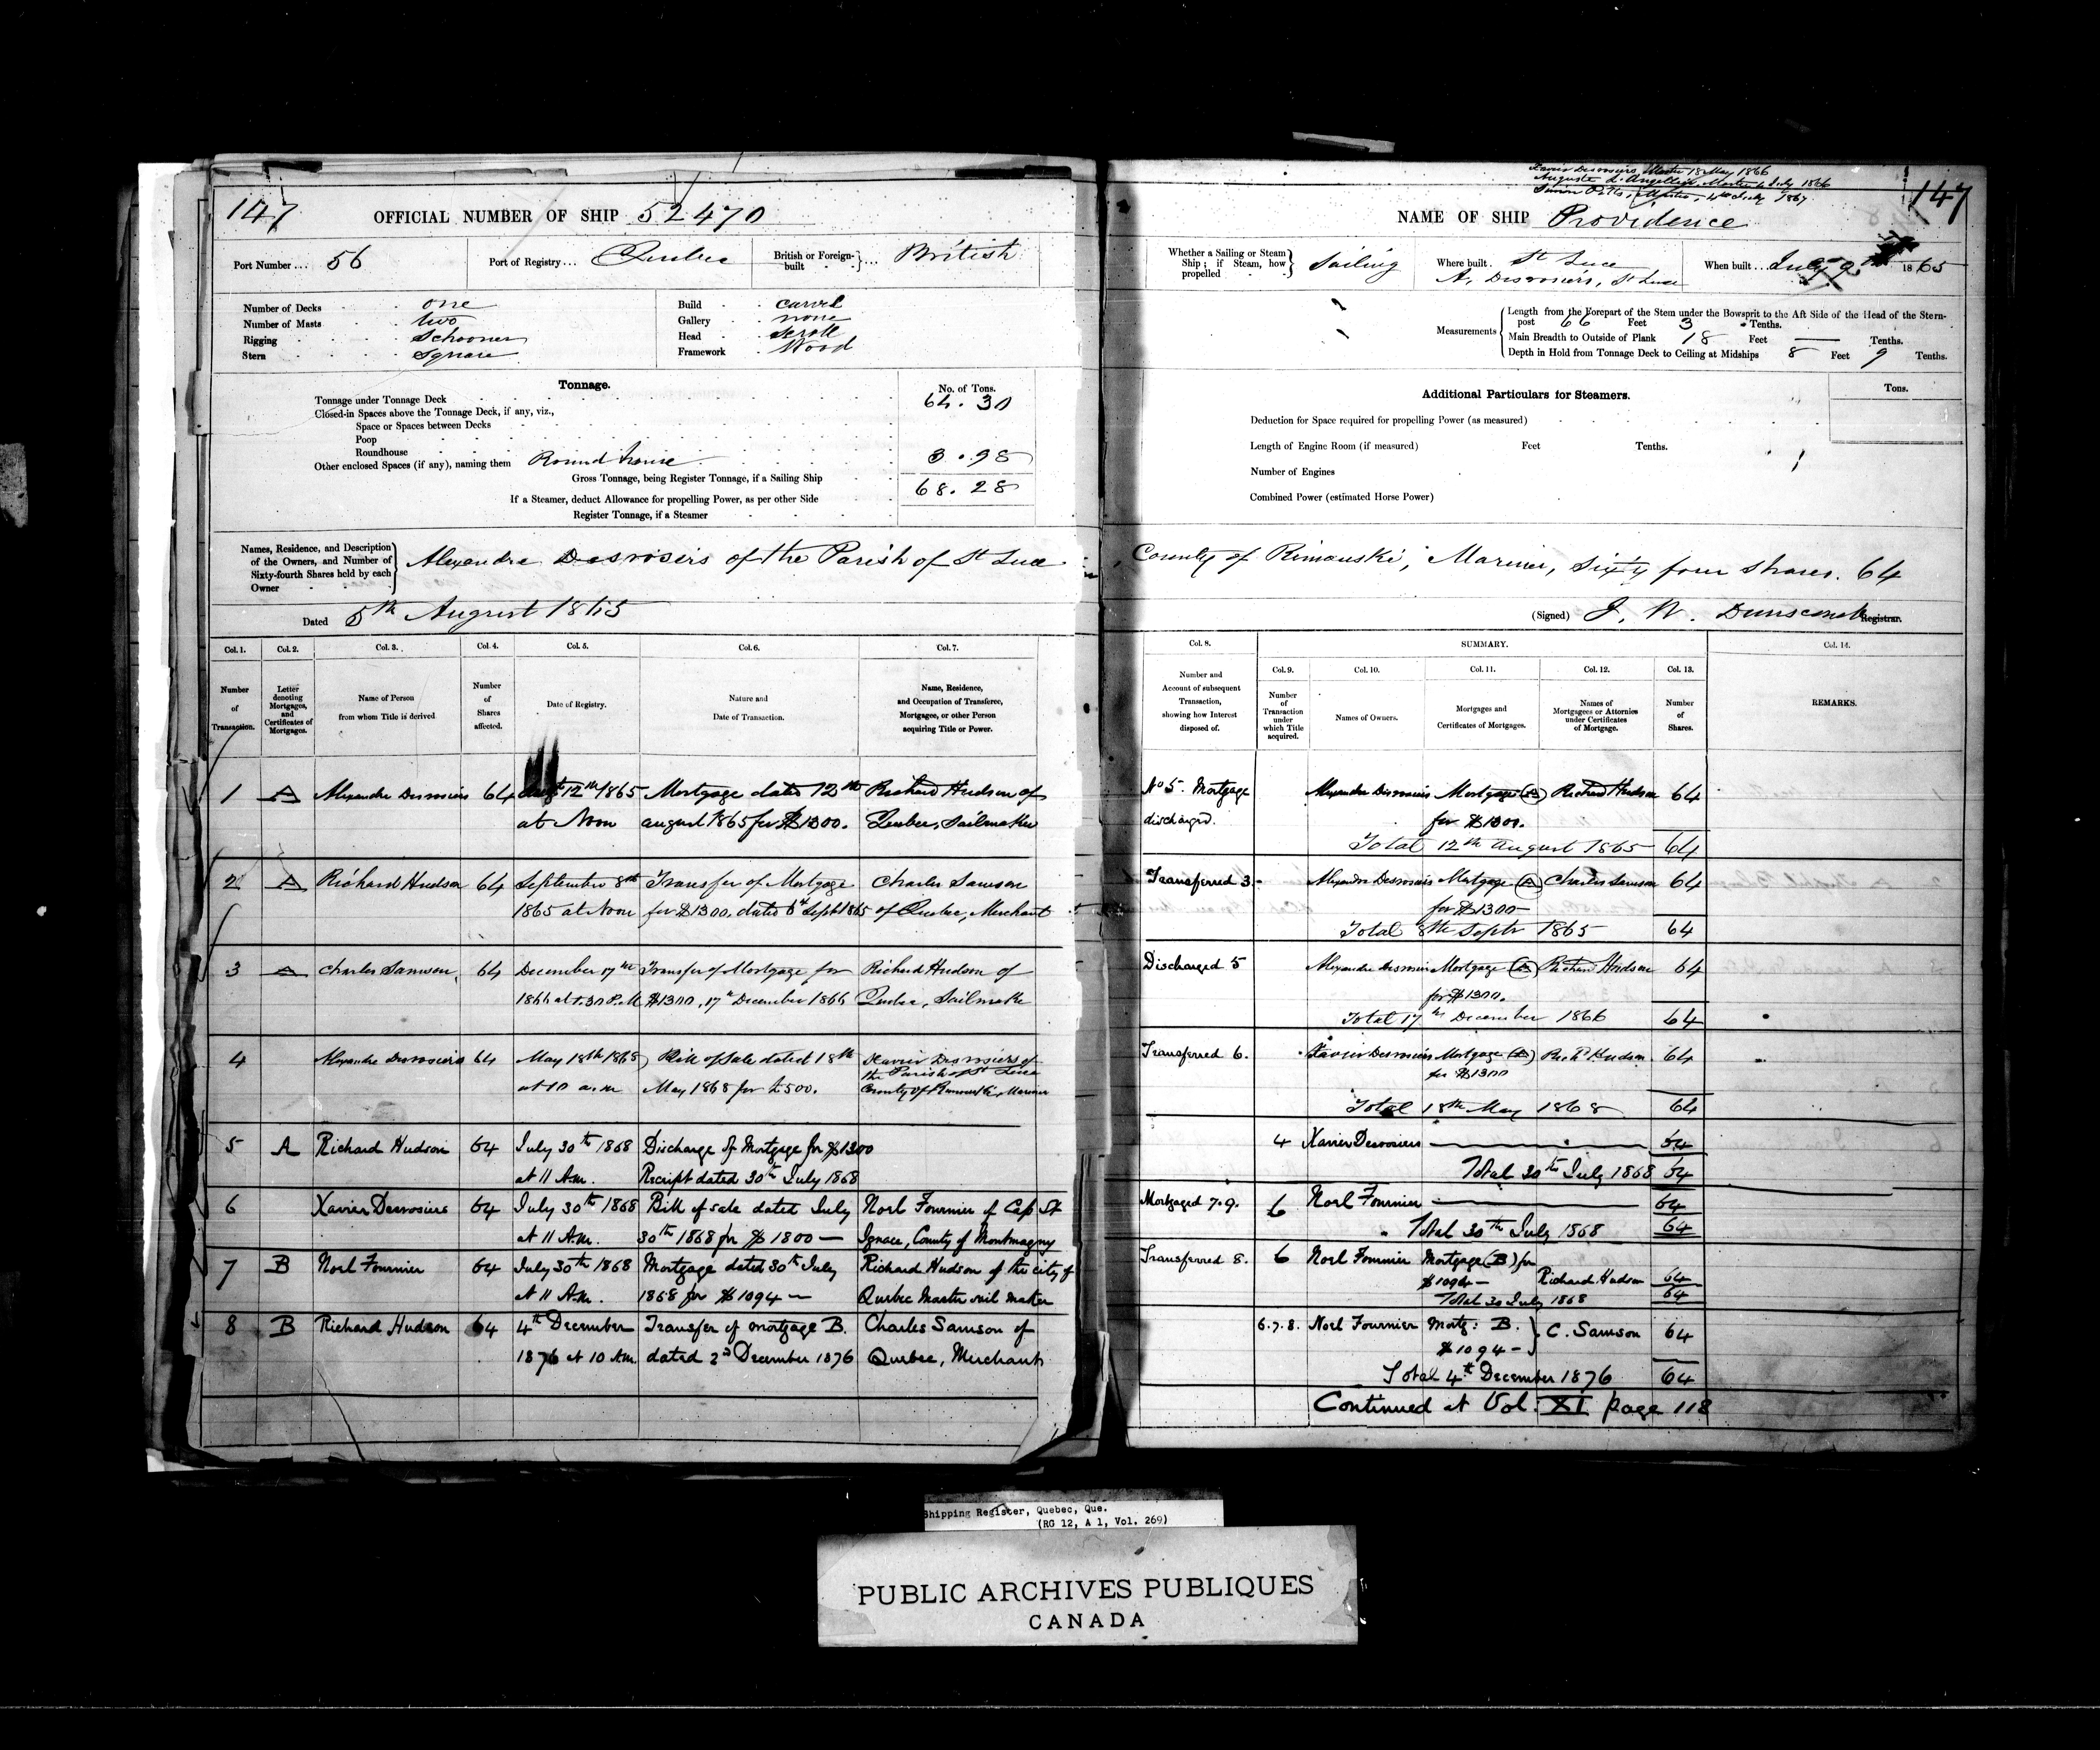 147
OFFICIAL NUMBER OF SHIP 52470
Port Number ... 56
Port of Registry ... Quebec
British or Foreign-built } ... British
Number of Decks one
Number of Masts two
Rigging Schooner
Stern Square
Build carvel
Gallery none
Head scroll
Framework Wood
Tonnage.
No. of Tons.
Tonnage under Tonnage Deck 64.30
Closed-in Spaces above the Tonnage Deck, if any, viz.,
Space or Spaces between Decks
Poop
Roundhouse
Other enclosed Spaces (if any), naming them Round house 3.98
Gross Tonnage, being Register Tonnage, if a Sailing Ship 68.28
If a Steamer, deduct Allowance for propelling Power, as per other Side
Register Tonnage, if a Steamer
Names, Residence, and Description of the Owners, and Number of Sixty-fourth Shares held by each Owner } Alexandre Desrosiers of the Parish of St Luce
Dated 5th August 1865
Col. 1. Col. 2. Col. 3. Col. 4. Col. 5. Col. 6. Col. 7.
Number of Transaction.
Letter denoting Mortgages, and Certificates of Mortgages.
Name of Person from whom Title is derived
Number of Shares affected.
Date of Registry.
Nature and Date of Transaction.
Name, Residence, and Occupation of Transferee, Mortgagee, or other Person acquiring Title or Power.
1 A Alexandre Desrosiers 64 12th 1865 Mortgage dated 12th Richard Hudson of
at Noon august 1865 for $1300. Quebec, Sailmaker
2 A Richard Hudson 64 September 8th Transfer of Mortgage Charles Samson
1865 at Noon for $1300, dated Sept 1865 of Quebec, Merchant
3 A Charles Samson 64 December 17th Transfer of Mortgage for Richard Hudson of
1866 at P.M $1300, 17th December 1866 Quebec, Sailmaker
4 Alexandre Desrosiers 64 May 18th 1868 Bill of Sale dated 18th Xavier Desrosiers of
the Parish of St Luce
at 10 a.m May 1868 for £500. County of Rimouski, Mariner
5 A Richard Hudson 64 July 30th 1868 Discharge of Mortgage for $1300
at 11 A.M. Receipt dated 30th July 1868
6 Xavier Desrosiers 64 July 30th 1868 Bill of sale dated July Noel Fournier of Cap St
at 11 A.M. 30th 1868 for $1800 — Ignace, County of Montmagny
7 B Noel Fournier 64 July 30th 1868 Mortgage dated 30th July Richard Hudson of the city of
at 11 A.M. 1868 for $1094 — Quebec Master sail maker
8 B Richard Hudson 64 4th December Transfer of mortgage B. Charles Samson of
1876 at 10 A.M. dated 2d December 1876 Quebec, Merchant
Xavier Desrosiers, Master 18 May 1866
Auguste Master July 1866
Simon Master, 4th July 1867
147
NAME OF SHIP Providence
Whether a Sailing or Steam Ship; if Steam, how propelled } Sailing
Where built. St Luce
A. Desrosiers, St Luce
When built ... July 1865
Measurements
Length from the Forepart of the Stem under the Bowsprit to the Aft Side of the Head of the Stern-
post 66 Feet 3 Tenths.
Main Breadth to Outside of Plank 18 Feet — Tenths.
Depth in Hold from Tonnage Deck to Ceiling at Midships 8 Feet 9 Tenths.
Additional Particulars for Steamers.
Tons.
Deduction for Space required for propelling Power (as measured)
Length of Engine Room (if measured) Feet Tenths.
Number of Engines
Combined Power (estimated Horse Power)
County of Rimouski, Mariner, Sixty four Shares. 64
(Signed) J. W. Dunscomb Registrar.
Col. 8. SUMMARY. Col. 14.
Col. 9. Col. 10. Col. 11. Col. 12. Col. 13.
Number and Account of subsequent Transaction, showing how Interest disposed of.
Number of Transaction under which Title acquired.
Names of Owners.
Mortgages and Certificates of Mortgages.
Names of Mortgagees or Attornies under Certificates of Mortgage.
Number of Shares.
REMARKS.
No 5. Mortgage Alexandre Desrosiers Mortgage (A) Richard Hudson 64
discharged. for $1300.
Total 12th august 1865 64
Transferred 3. Alexandre Desrosiers Mortgage (A) Charles Samson 64
for $1300—
Total 8th Septr 1865 64
Discharged 5 Alexandre Desrosiers Mortgage (A) Richard Hudson 64
for $1300.
Total 17th December 1866 64
Transferred 6. Xavier Desrosiers Mortgage (A) Richd Hudson 64
for $1300
Total 18th May 1868 64
4 Xavier Desrosiers 64
Total 30th July 1868 64
Mortgaged 7.9. 6 Noel Fournier 64
Total 30th July 1868 64
Transferred 8. 6 Noel Fournier Mortgage (B) for
$1094 — Richard Hudson 64
Total 30 July 1868 64
6.7.8. Noel Fournier Mortg: B. } C. Samson 64
$1094 —
Total 4th December 1876 64
Continued at Vol. XI page 118
Shipping Register, Quebec, Que.
(RG 12, A 1, Vol. 269)
PUBLIC ARCHIVES PUBLIQUES
CANADA